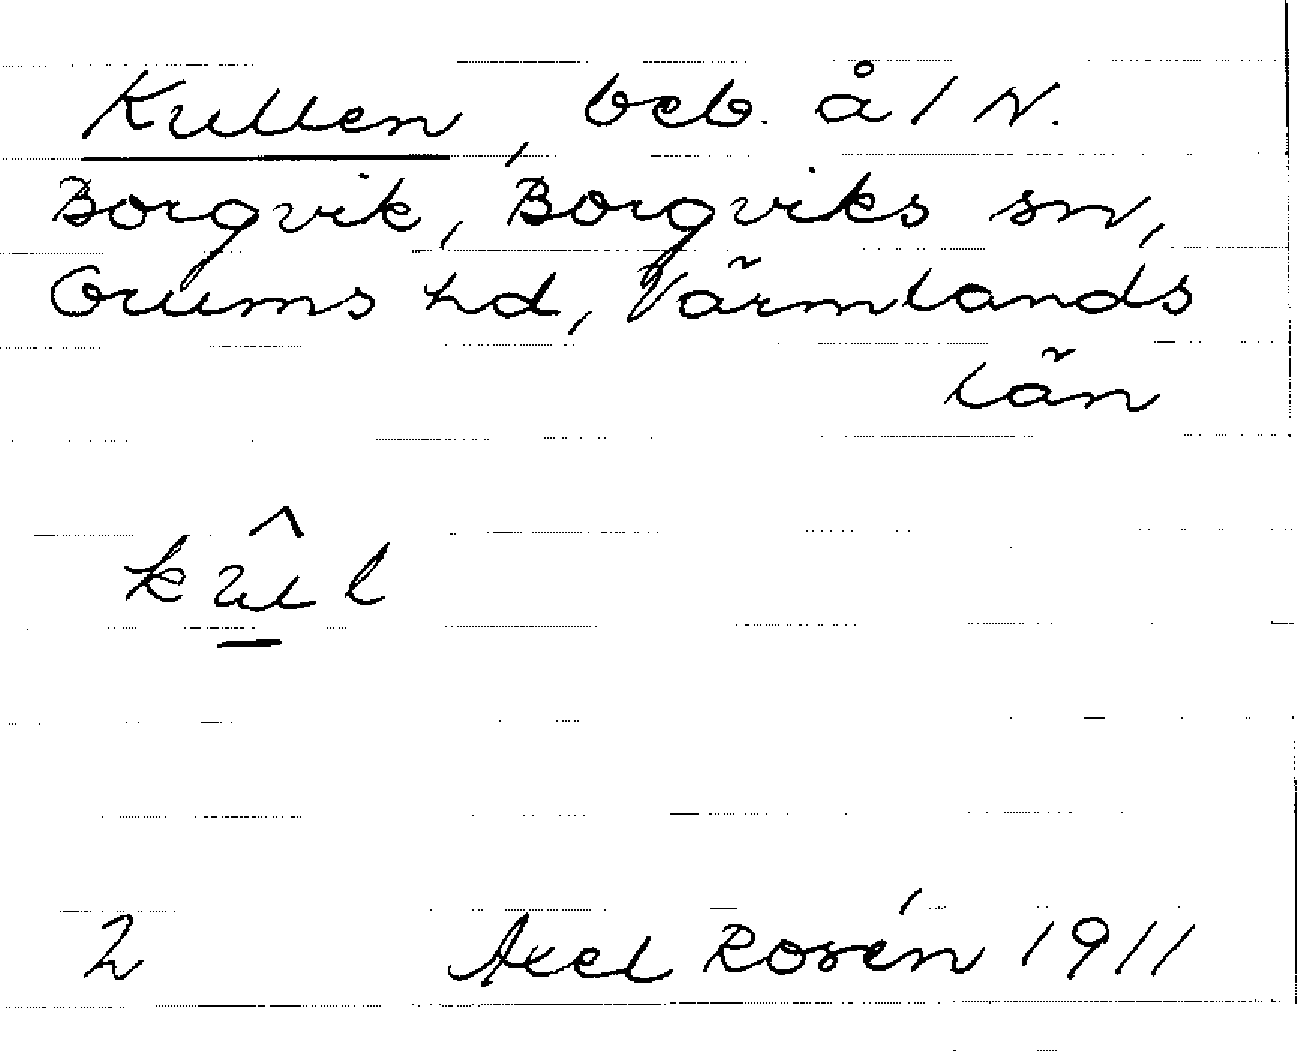 Kullen, beb. å 1 N.
Borgvik, Borgviks sn,
Grums hd, Värmlands
län
kûl
2 Axel Rosén 1911